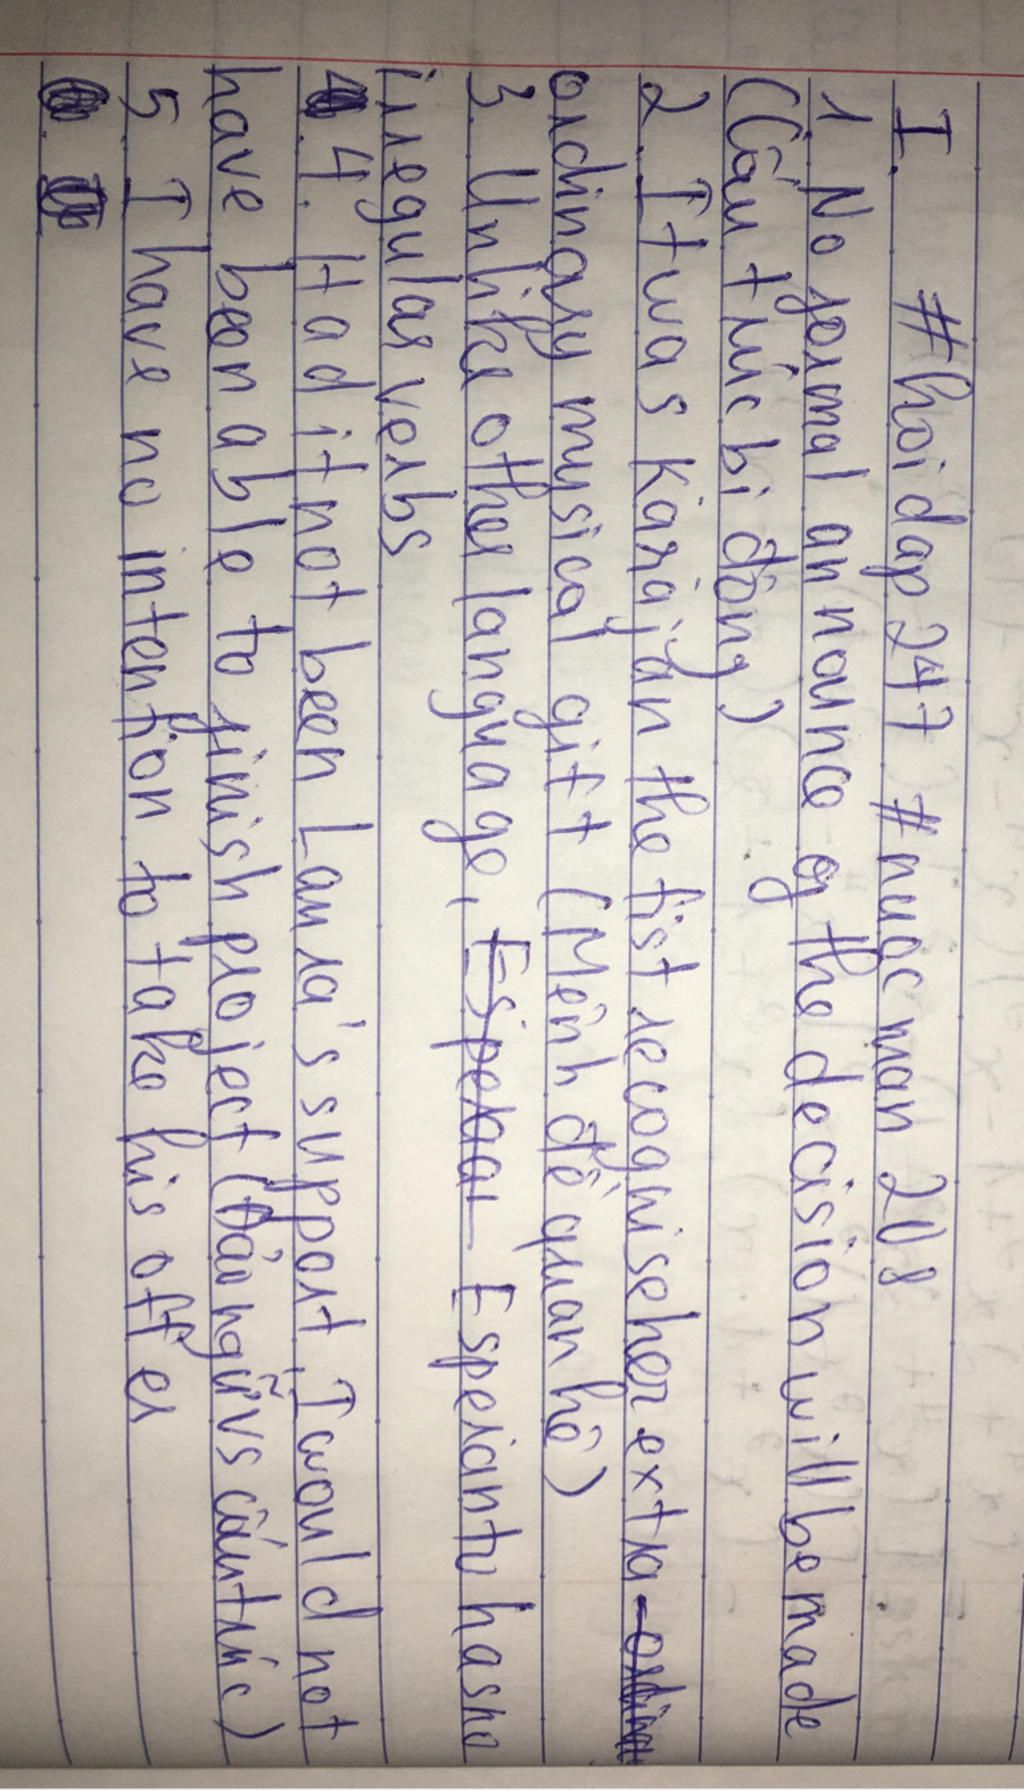 I. #hoidap247 #nuocman208
1. No formal announce of the decision will be made
(Câu trúc bị động)
2. It was Karajan the fist recogniseher extra
ordinary musical gift (Mệnh đề quan hệ)
3. Unlike other language, Esperanto has no
irregular verbs
4. Had it not been Laura's support, I would not
have been able to finish project (Đảo ngữ vs cấu trúc)
5. I have no intention to take his offer